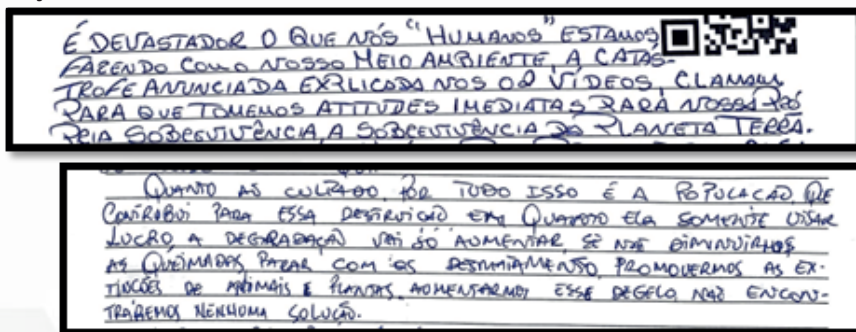 É DEVASTADOR O QUE NÓS "HUMANOS" ESTAMOS
FAZENDO COM O NOSSO MEIO AMBIENTE, A CATÁS-
TROFE ANUNCIADA EXPLICADA NOS 02 VÍDEOS, CLAMAM
PARA QUE TOMEMOS ATITUDES IMEDIATAS PARA NOSSA PRÓ
PRIA SOBREVIVÊNCIA, A SOBREVIVÊNCIA DO PLANETA TERRA.
QUANTO AS CULPADO POR TUDO ISSO É A POPULACAÕ, QUE
CONTRIBUI PARA ESSA DESTRUICAÕ EM QUANTO ELA SOMENTE VISAR
LUCRO, A DEGRADAÇAÕ VAI SÓ AUMENTAR, SE NÃO DIMINUIRMOS
AS QUEIMADAS, PARAR COM OS DESMATAMENTO, PROMOVERMOS AS EX-
TINCÕES DE ANIMAIS E PLANTAS, AUMENTARMOS ESSE DEGELO, NAÕ ENCON-
TRAREMOS NENHUMA SOLUÇÃO.